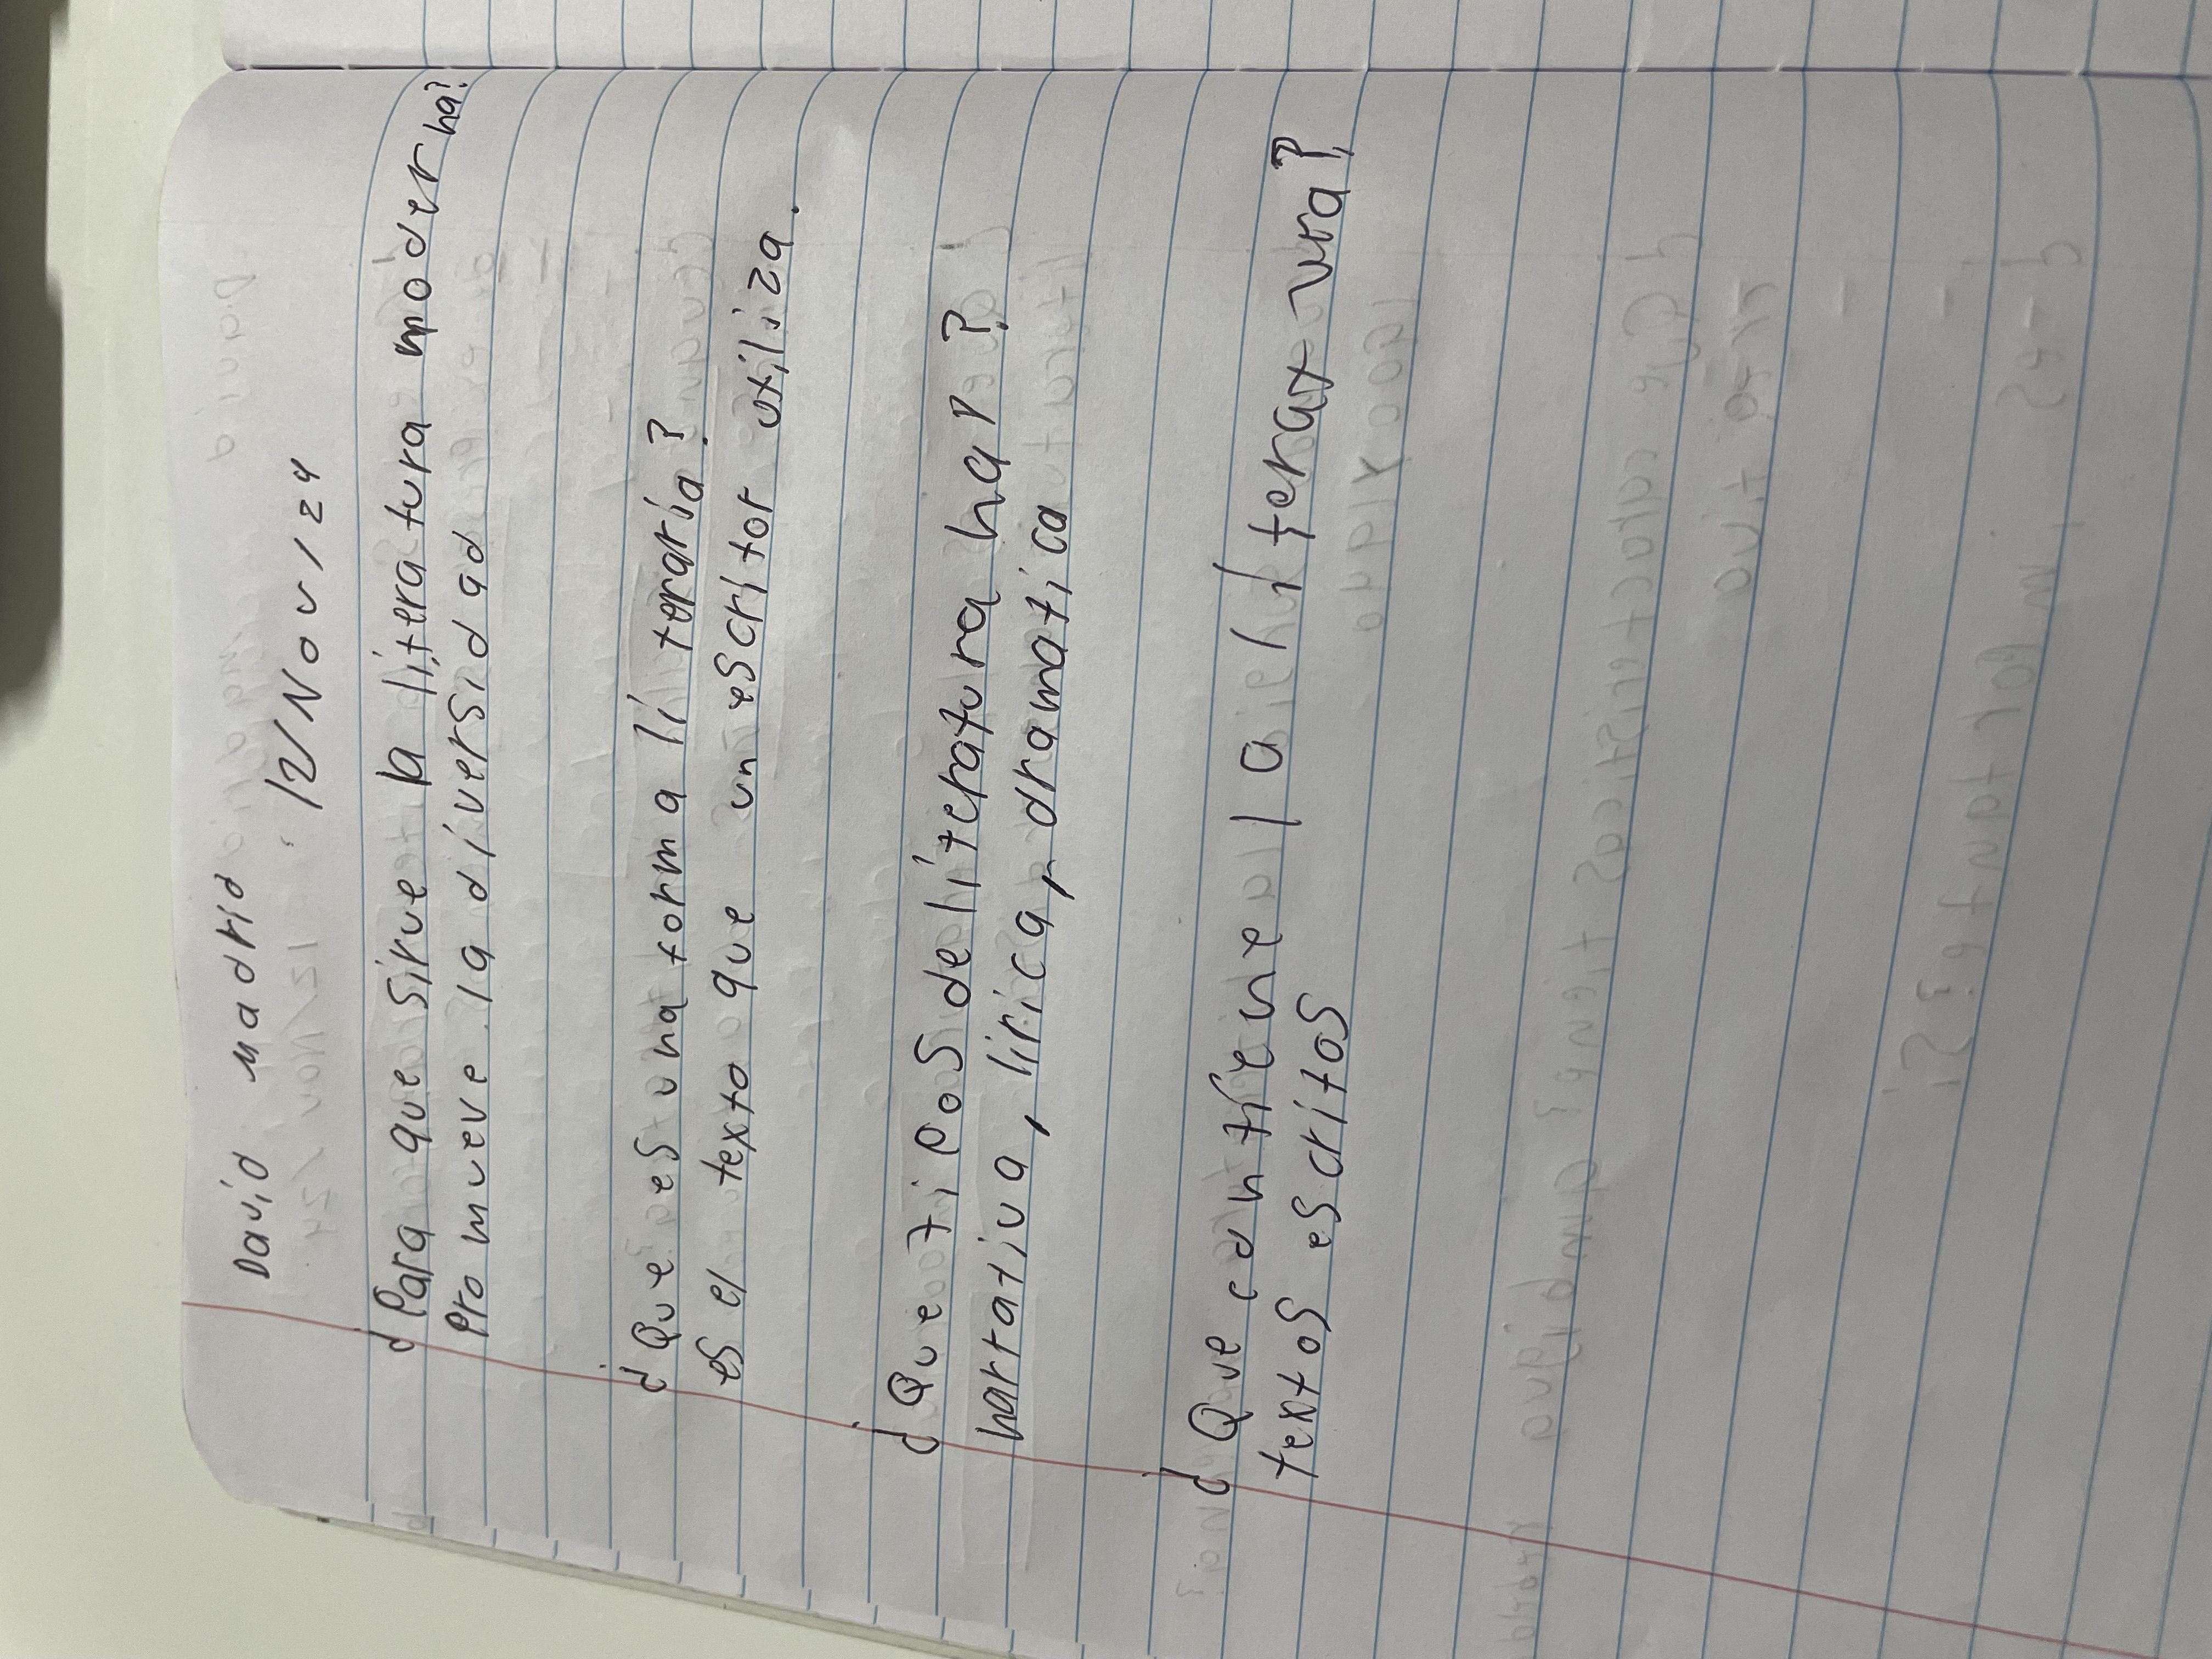 David Madrid
12/Nov/24
¿Para que sirve la literatura moderna?
Promueve la diversidad
¿Que es una forma literaria?
es el texto que un escritor utiliza.
¿Que tipos de literatura hay?
narrativa, lirica, dramatica
¿Que contiene la literatura?
textos escritos